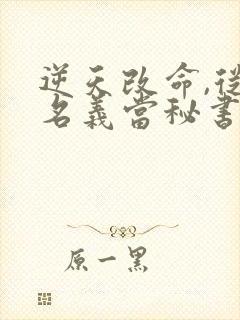 逆天改命,從
名義當秘書
原一黑